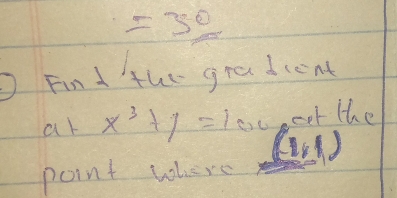 = 30
Find the gradient
at x³ + y = 100 at the
point where (1,1)